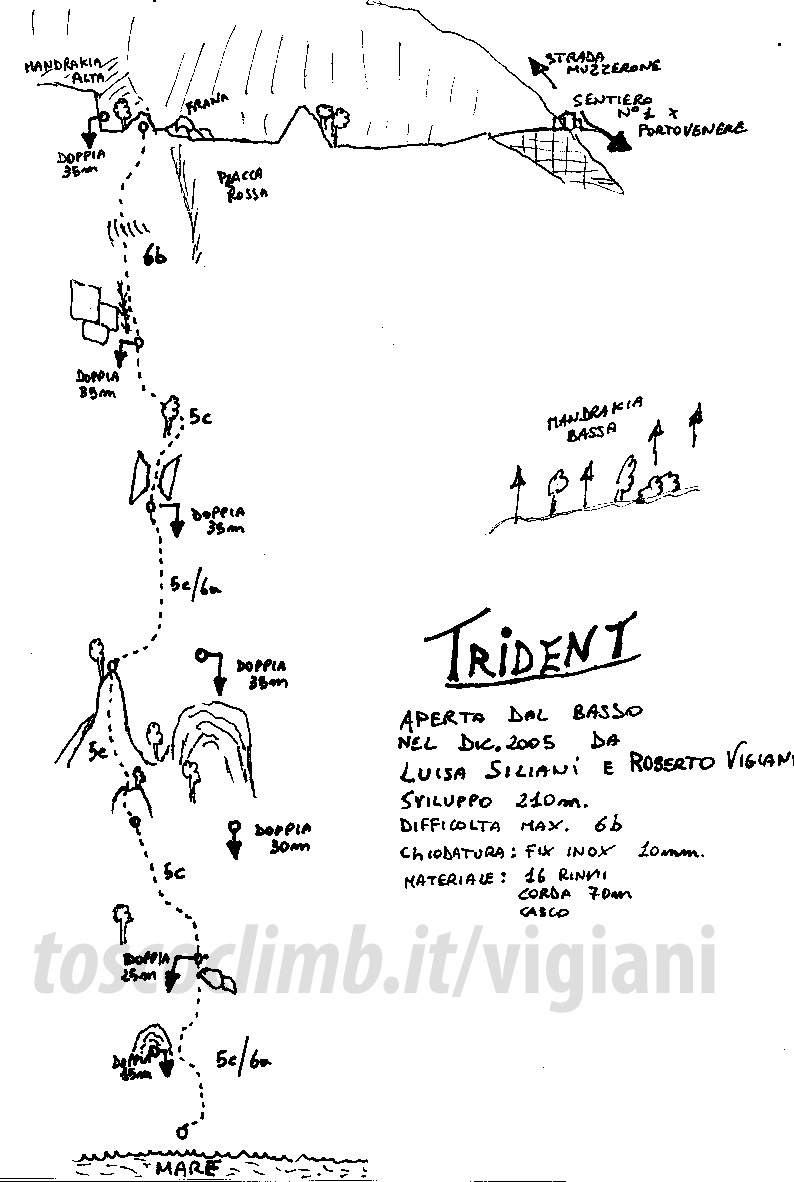 MANDRAKIA
ALTA
STRADA
MUZZERONE
FRANA
SENTIERO
N° 1 X
PORTOVENERE
DOPPIA
35m
PLACCA
ROSSA
6b
DOPPIA
35m
5c
MANDRAKIA
BASSA
DOPPIA
35m
5c/6a
TRIDENT
DOPPIA
35m
APERTA DAL BASSO
NEL DIC. 2005 DA
LUISA SILIANI E ROBERTO VIGIANI
SVILUPPO 210m.
DIFFICOLTA MAX. 6b
CHIODATURA: FIX INOX 10mm.
MATERIALE: 16 RINVII
CORDA 70m
CASCO
5c
DOPPIA
30m
5c
toscoclimb.it/vigiani
DOPPIA
25m
DOPPIA
5c/6a
MARE